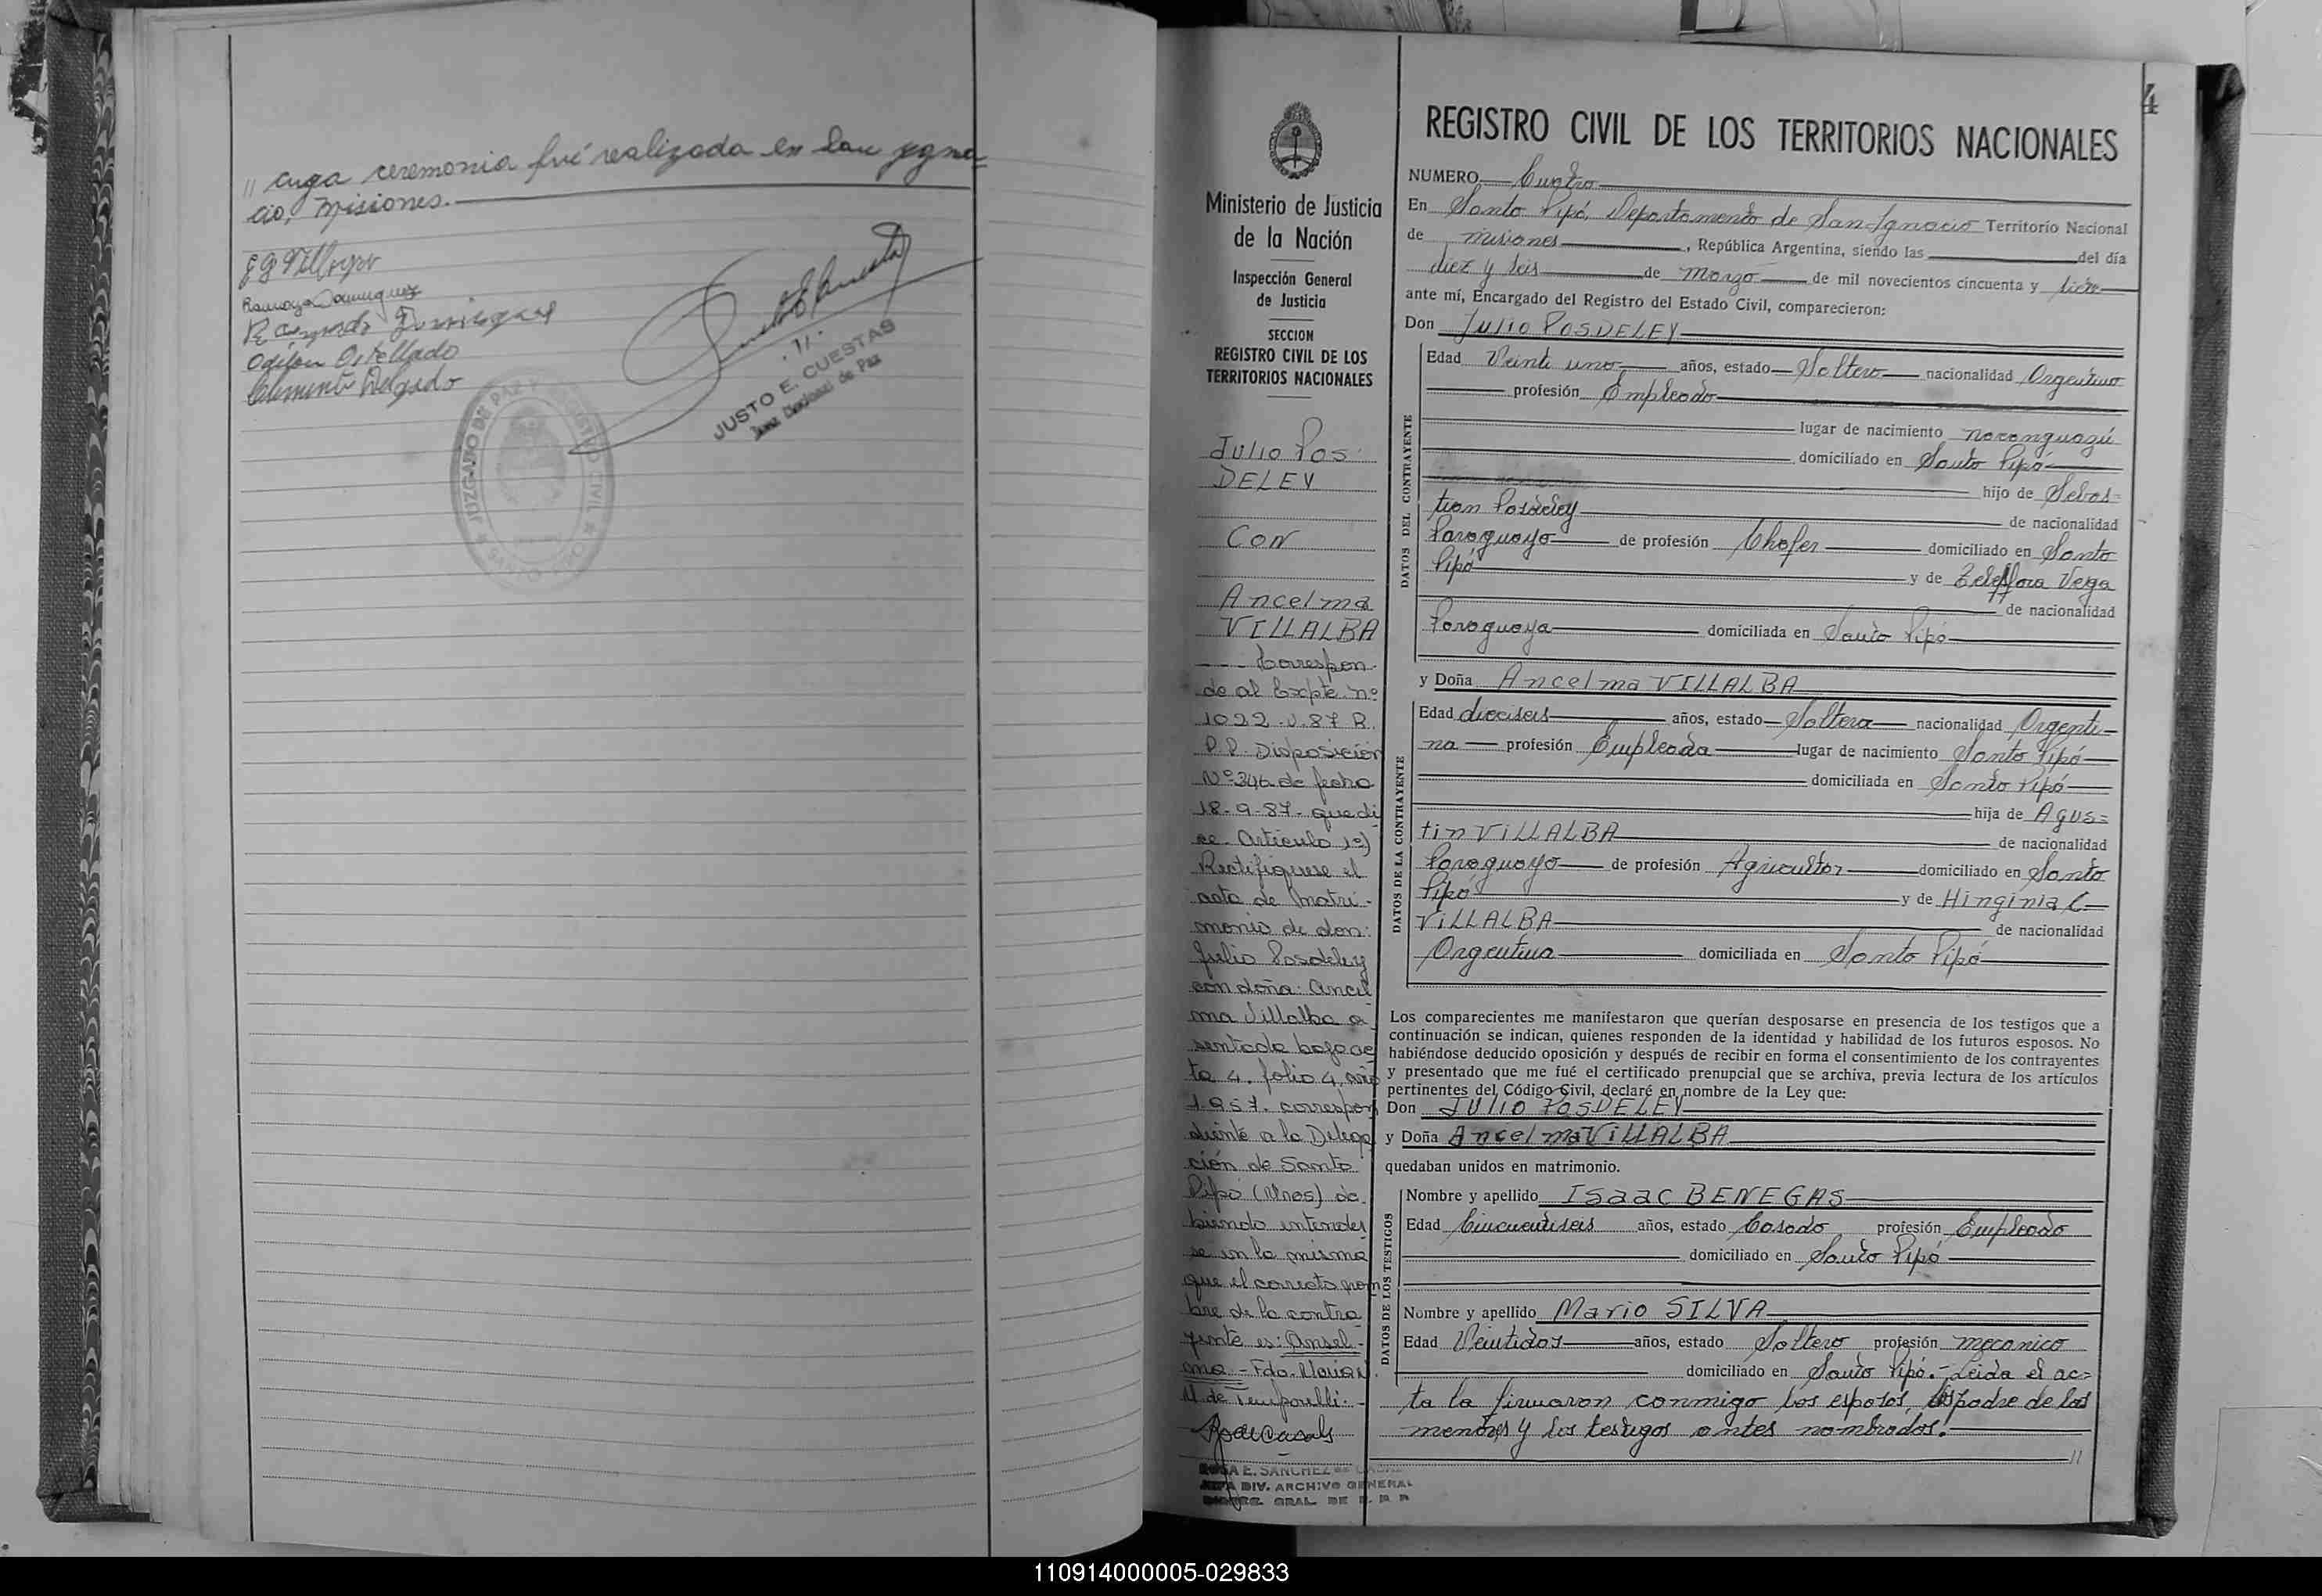 // cuya ceremonia fué realizada en San Ygna=
cio, Misiones.
Odilon Ostellado
Clemente Delgado
JUSTO E. CUESTAS
Juez Nacional de Paz
JUZGADO DE PAZ Y REGISTRO CIVIL
SANTO PIPO
4
Ministerio de Justicia
de la Nación
Inspección General
de Justicia
SECCION
REGISTRO CIVIL DE LOS
TERRITORIOS NACIONALES
JULIO POS
DELEY
CON
Ancelma
VILLALBA
--- Correspon-
de al Expte. nº
1022-V.87 R.
P.P. Disposición
Nº 346 de fecha
18-9-87- que di
ce. Artículo 1º)
Rectifiquese el
acta de Matri-
monio de don:
Julio Posdeley
con doña: Ancel
ma Villalba a
sentada bajo ac
ta 4. folio 4, año
1957. correspon
diente a la Delega
ción de Santo
Pipó (Mnes) de
biendo entender
se en la misma
que el correcto nom
bre de la contra
yente es: Ansel-
ma - Fdo. Maria
M de Temporelli.-
ROSA E. SANCHEZ DE CASALS
JEFA DIV. ARCHIVO GENERAL
DIREC. GRAL. DE R. P. P.
REGISTRO CIVIL DE LOS TERRITORIOS NACIONALES
NUMERO Cuatro
En Santo Pipó, Departamento de San Ignacio Territorio Nacional
de Misiones, República Argentina, siendo las del día
diez y seis de Marzo de mil novecientos cincuenta y siete
ante mí, Encargado del Registro del Estado Civil, comparecieron:
Don JULIO POSDELEY
DATOS DEL CONTRAYENTE
Edad Veinte uno años, estado Soltero nacionalidad Argentino
profesión Empleado
lugar de nacimiento Ñacanguazú
domiciliado en Santo Pipó
hijo de Sebas=
tian Posdeley
de nacionalidad
Paraguayo de profesión Chofer domiciliado en Santo
Pipó y de Teleffora Vega
de nacionalidad
Paraguaya domiciliada en Santo Pipó
y Doña Ancelma VILLALBA
DATOS DE LA CONTRAYENTE
Edad dieciseis años, estado Soltera nacionalidad Argenti-
na profesión Empleada lugar de nacimiento Santo Pipó
domiciliada en Santo Pipó
hija de Agus=
tin VILLALBA
de nacionalidad
Paraguayo de profesión Agricultor domiciliado en Santo
Pipó y de Hinginia C.
VILLALBA
de nacionalidad
Argentina domiciliada en Santo Pipó
Los comparecientes me manifestaron que querían desposarse en presencia de los testigos que a
continuación se indican, quienes responden de la identidad y habilidad de los futuros esposos. No
habiéndose deducido oposición y después de recibir en forma el consentimiento de los contrayentes
y presentado que me fué el certificado prenupcial que se archiva, previa lectura de los artículos
pertinentes del Código Civil, declaré en nombre de la Ley que:
Don JULIO POSDELEY
y Doña Ancelma VILLALBA
quedaban unidos en matrimonio.
DATOS DE LOS TESTIGOS
Nombre y apellido Isaac BENEGAS
Edad Cincuentiseis años, estado Casado profesión Empleado
domiciliado en Santo Pipó
Nombre y apellido Mario SILVA
Edad Veintidos años, estado Soltero profesión mecanico
domiciliado en Santo Pipó.- Leida el ac=
ta la firmaron conmigo los esposos, los padre de los
menores y los testigos antes nombrados.
//
110914000005-029833